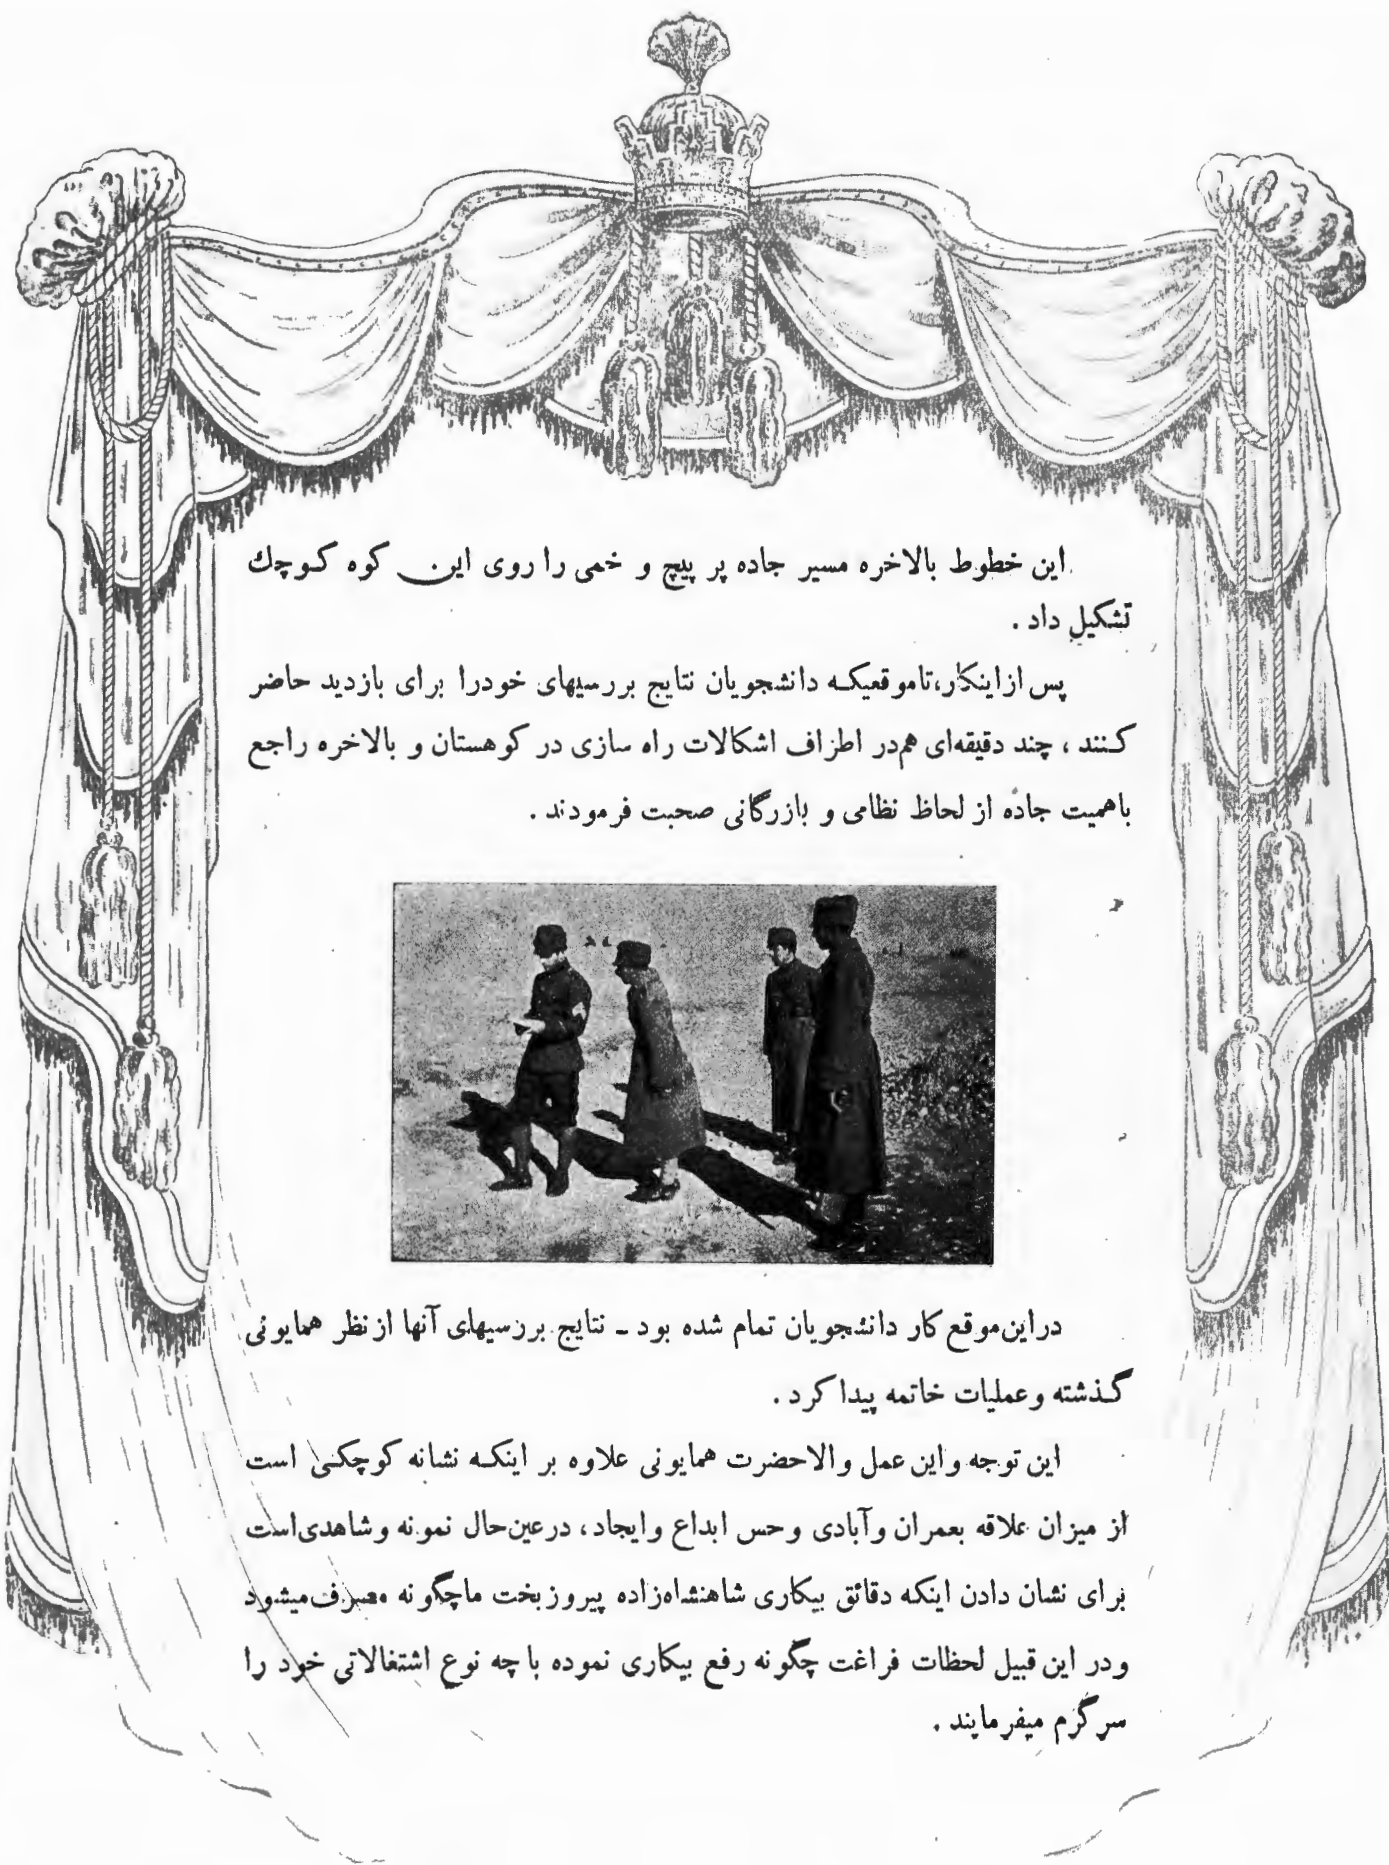 این خطوط بالاخره مسیر جاده پر پیچ و خمی را روی این کوه کوچك
تشکیل داد .
پس از اینکار،تاموقعیکه دانشجویان نتایج بررسیهای خودرا برای بازدید حاضر
کنند ، چند دقیقه‌ای هم‌در اطراف اشکالات راه سازی در کوهستان و بالاخره راجع
باهمیت جاده از لحاظ نظامی و بازرگانی صحبت فرمودند .
دراین‌موقع کار دانشجویان تمام شده بود ـ نتایج بررسیهای آنها از نظر همایونی
گذشته و عملیات خاتمه پیدا کرد .
این توجه و این عمل والاحضرت همایونی علاوه بر اینکه نشانه کوچکی است
از میزان علاقه بعمران و آبادی و حس ابداع و ایجاد ، درعین‌حال نمونه و شاهدی‌است
برای نشان دادن اینکه دقائق بیکاری شاهنشاه‌زاده پیروزبخت ماچگونه مصرف‌میشود
و در این قبیل لحظات فراغت چگونه رفع بیکاری نموده با چه نوع اشتغالاتی خود را
سرگرم میفرمایند .